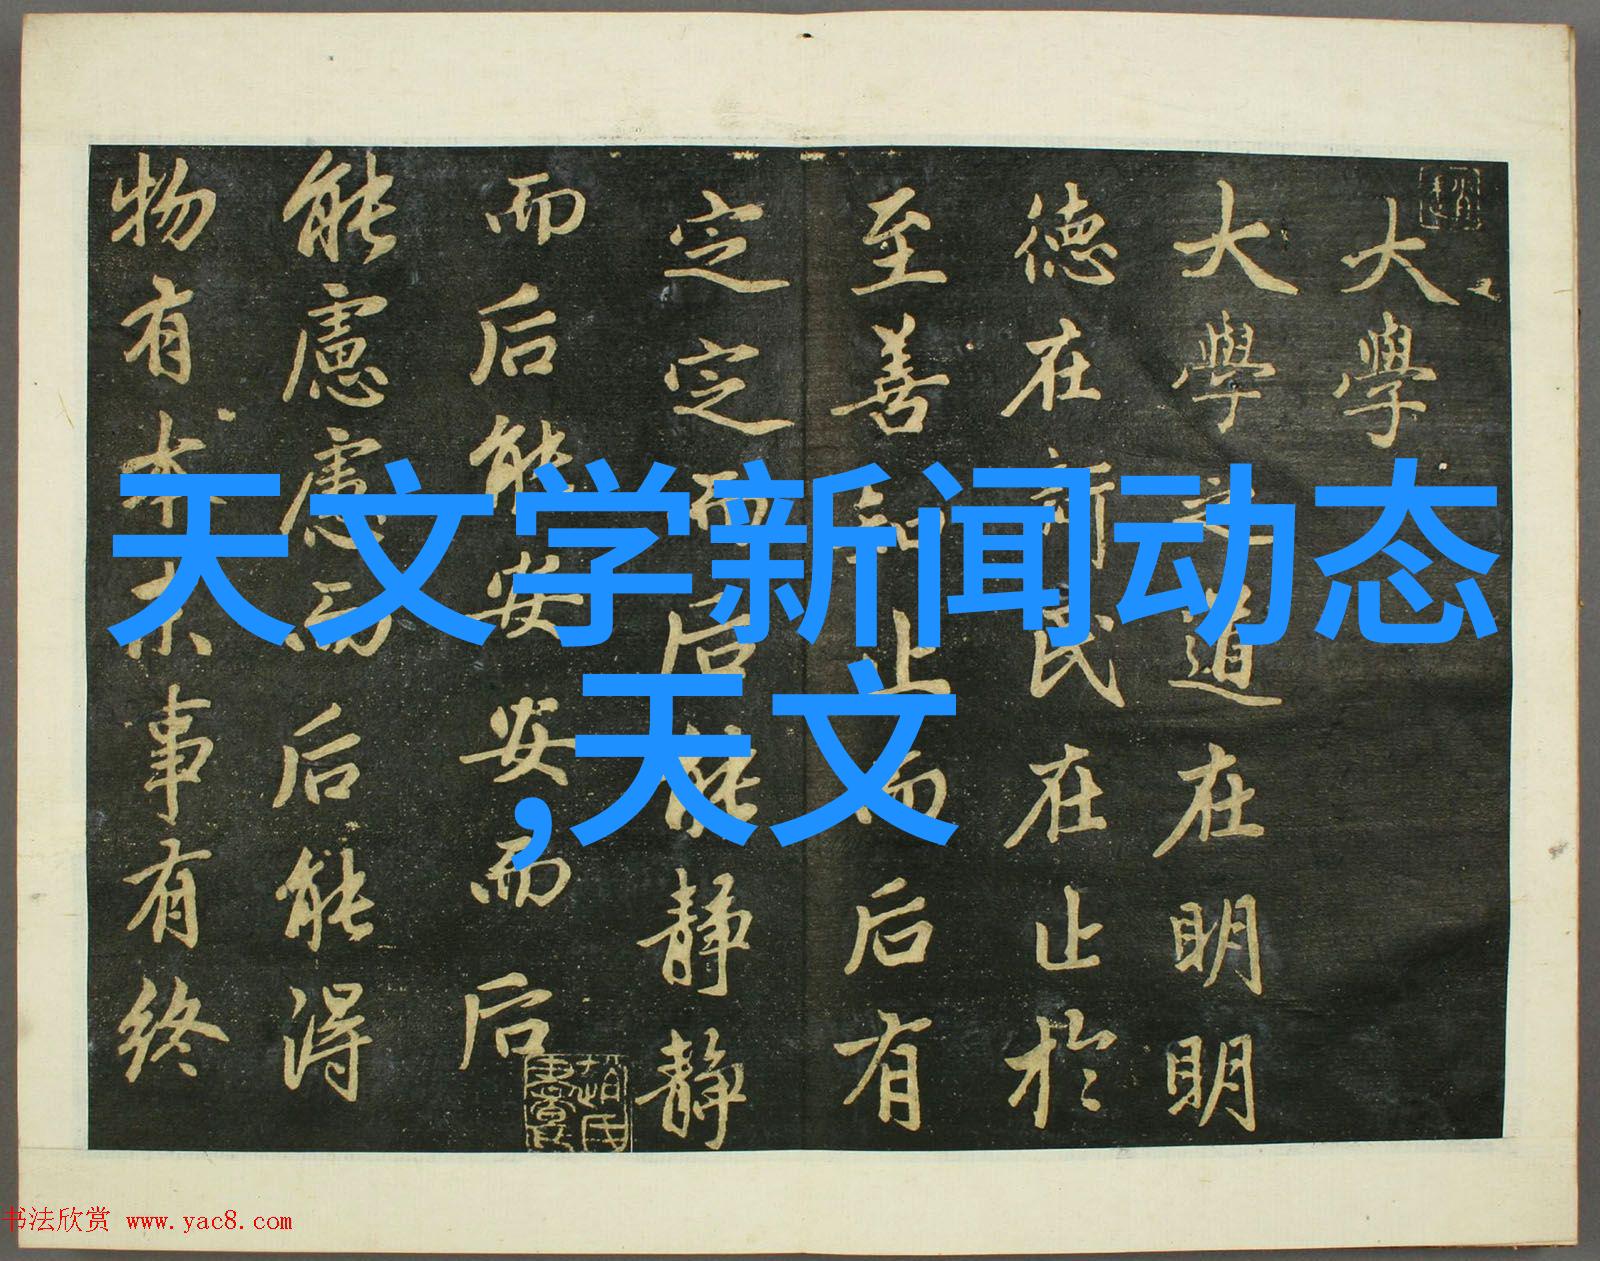 大學
大學之道在明明
德在新民在止於
至善知止而后有
定定而后能静静
而后能安安而后
能慮慮而后能得
物有本末事有終
天文学新闻动态
,天文
书法欣赏 www.yac8.com